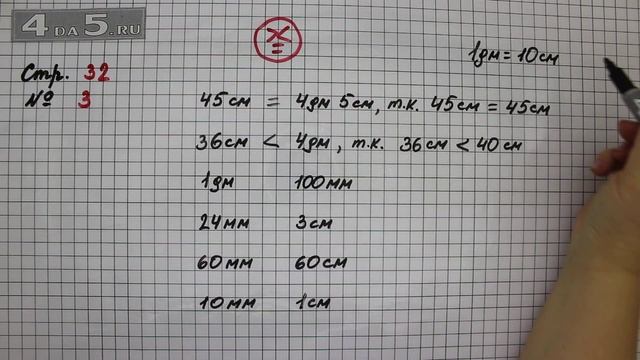 4 DA 5.RU
X
=
1дм = 10см
Стр. 32
№ 3
45см = 4дм 5см, т.к. 45см = 45см
36см < 4дм, т.к. 36см < 40см
1дм 100мм
24мм 3см
60мм 60см
10мм 1см